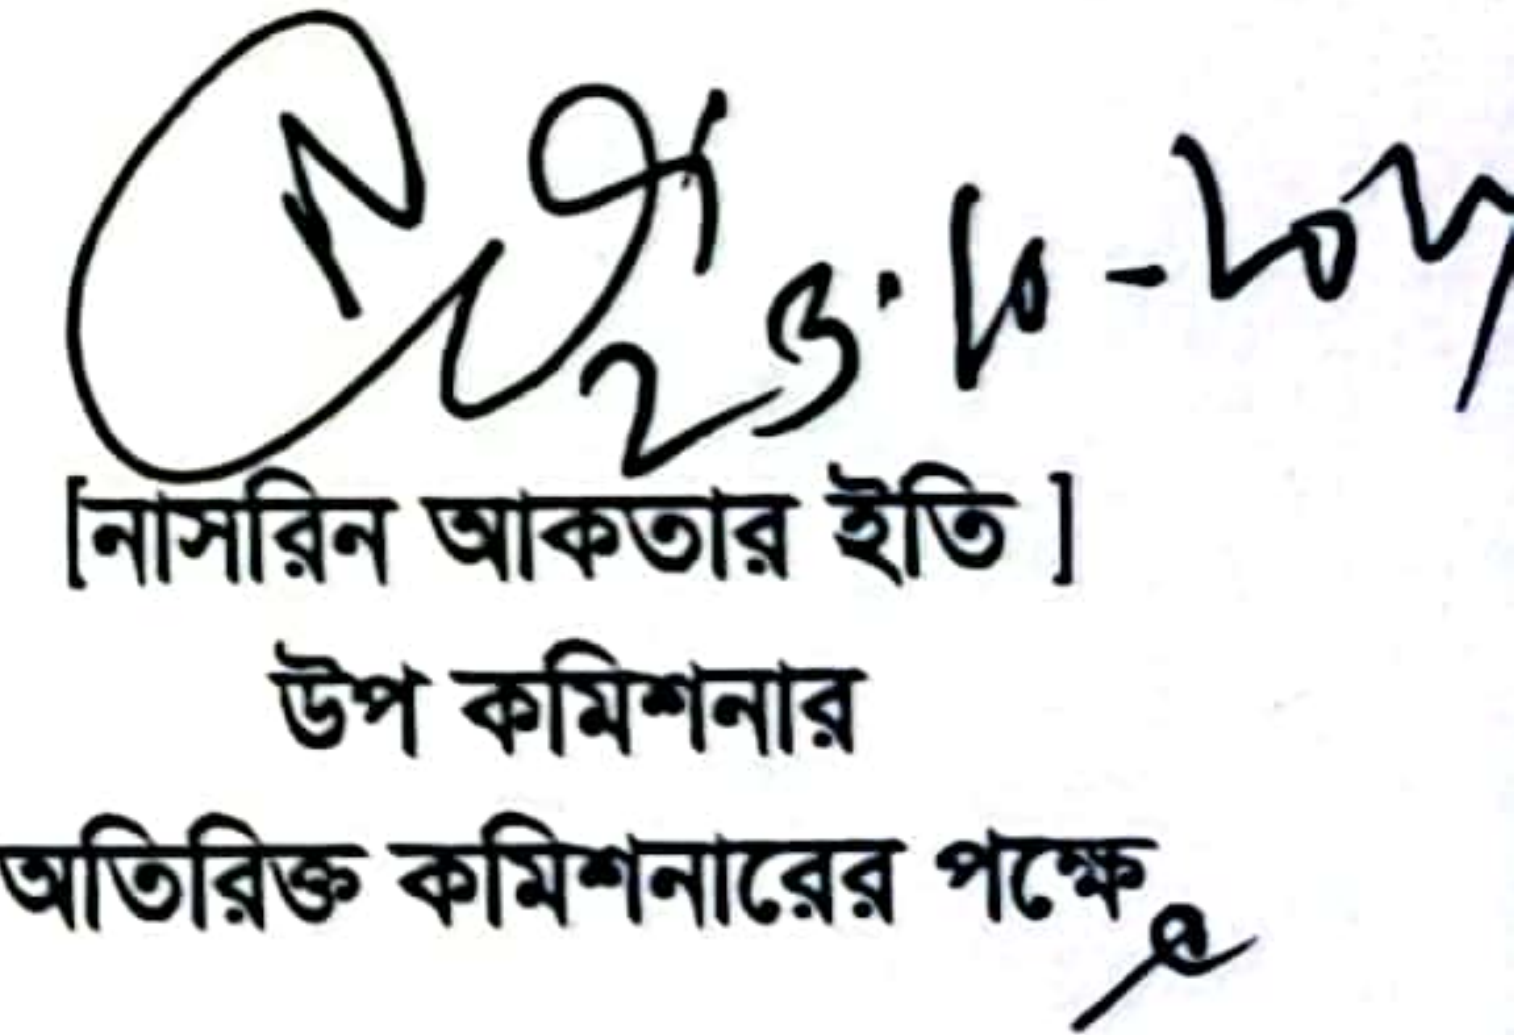 [নাসরিন আকতার ইতি ]
উপ কমিশনার
অতিরিক্ত কমিশনারের পক্ষে